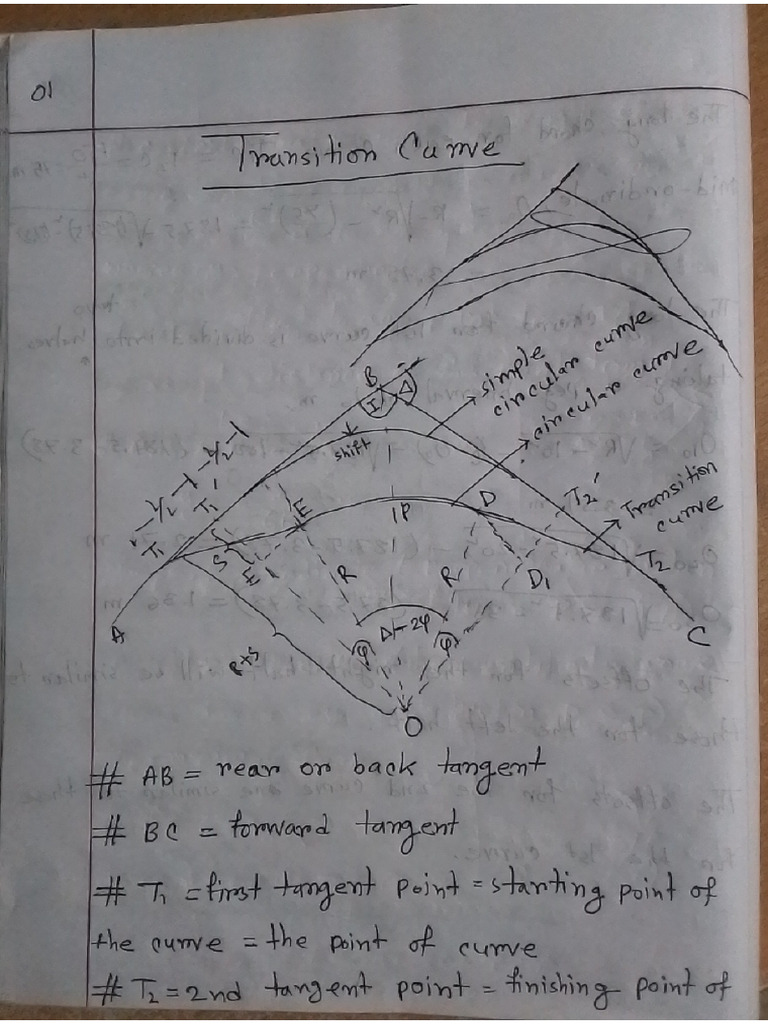 01
Transition Curve
simple
circular curve
circular curve
B
I
Δ
shift
L/2
L/2
T1
T1'
S
E
E1
P
D
T2'
Transition
curve
D1
T2
R
R
Δ-2φ
φ
φ
A
C
R+S
O
# AB = rear or back tangent
# BC = forward tangent
# T1 = first tangent point = starting point of
the curve = the point of curve
# T2 = 2nd tangent point = finishing point of